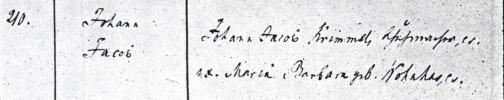 210. Johann Johann Jacob Krimmel, Schuhmacher, et
Jacob ux. Maria Barbara geb. Nohnhas,